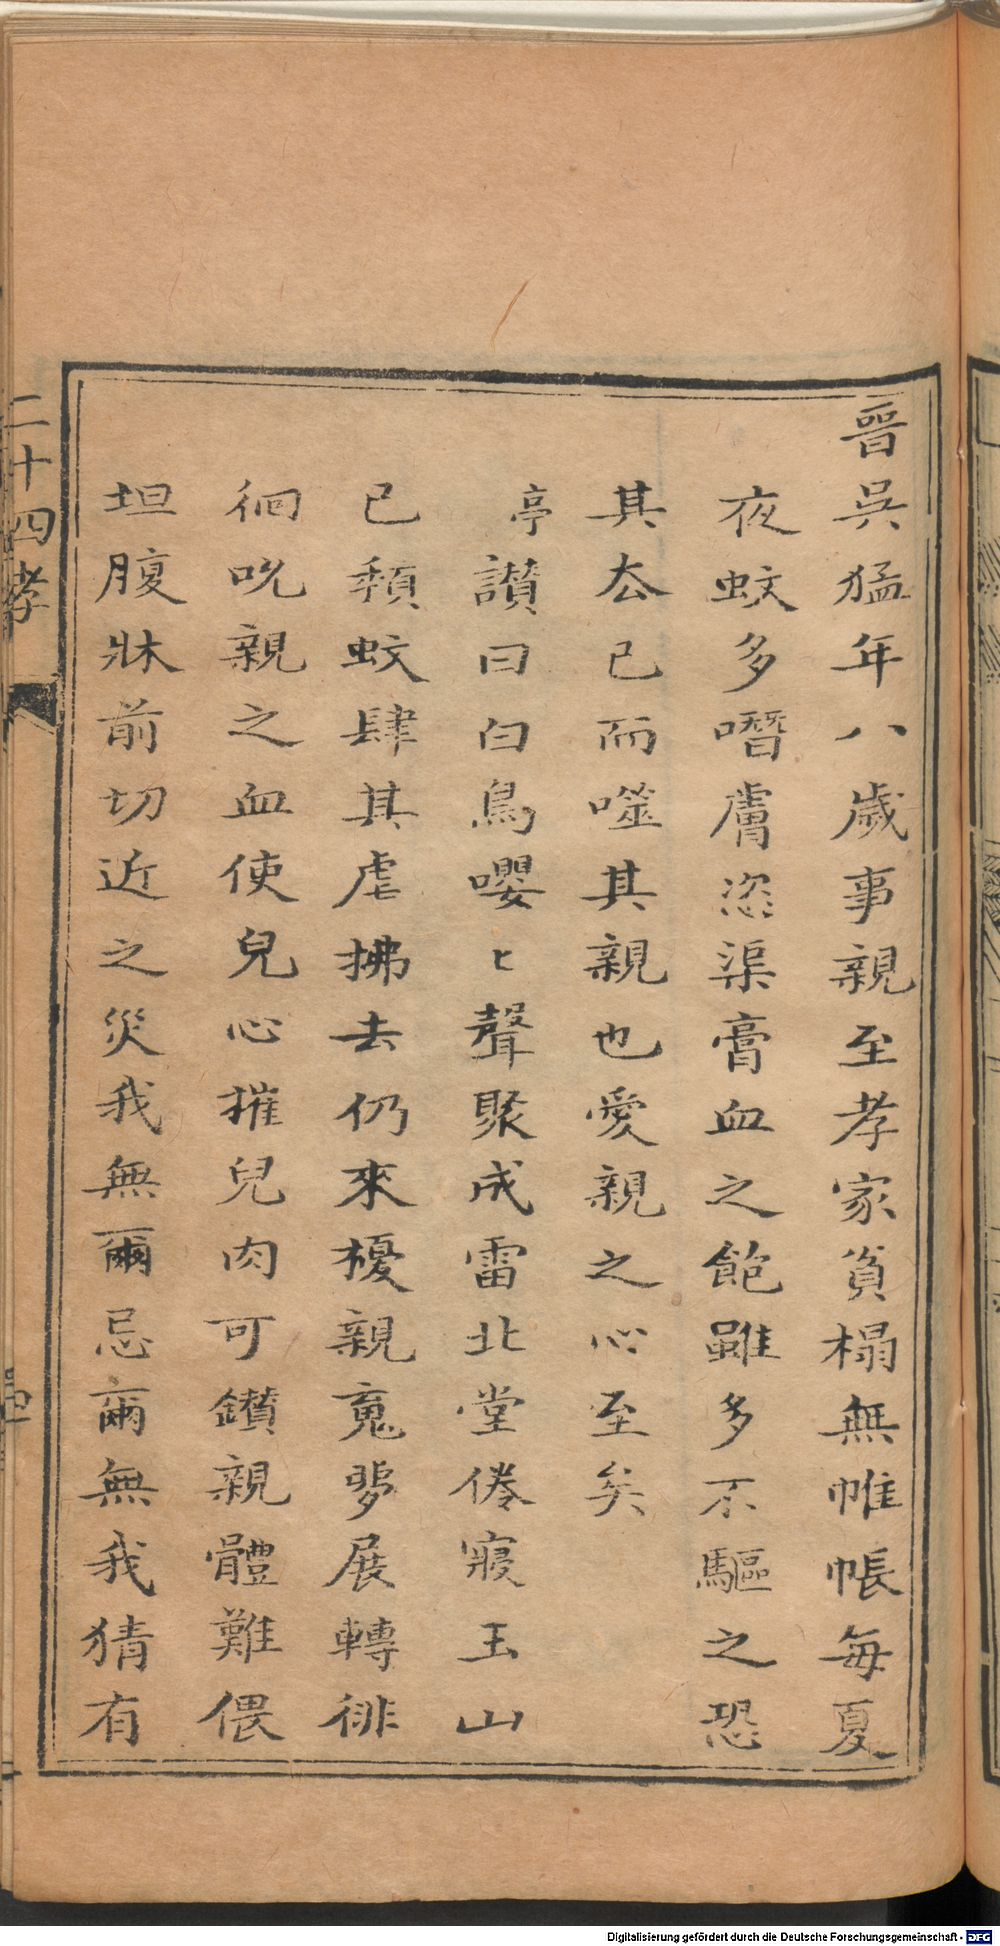 晉吳猛年八歲事親至孝家貧榻無帷帳每夏
夜蚊多噆膚恣渠膏血之飽雖多不驅之恐
其厺己而噬其親也愛親之心至矣
亭讃曰白鳥嚶〻聲聚成雷北堂倦寢玉山
已頹蚊肆其虐拂去仍來擾親䰟夢展轉徘
徊吮親之血使兒心摧兒肉可鑽親體難偎
坦腹牀前切近之災我無爾忌爾無我猜有
二十四孝
Digitalisierung gefördert durch die Deutsche Forschungsgemeinschaft - DFG